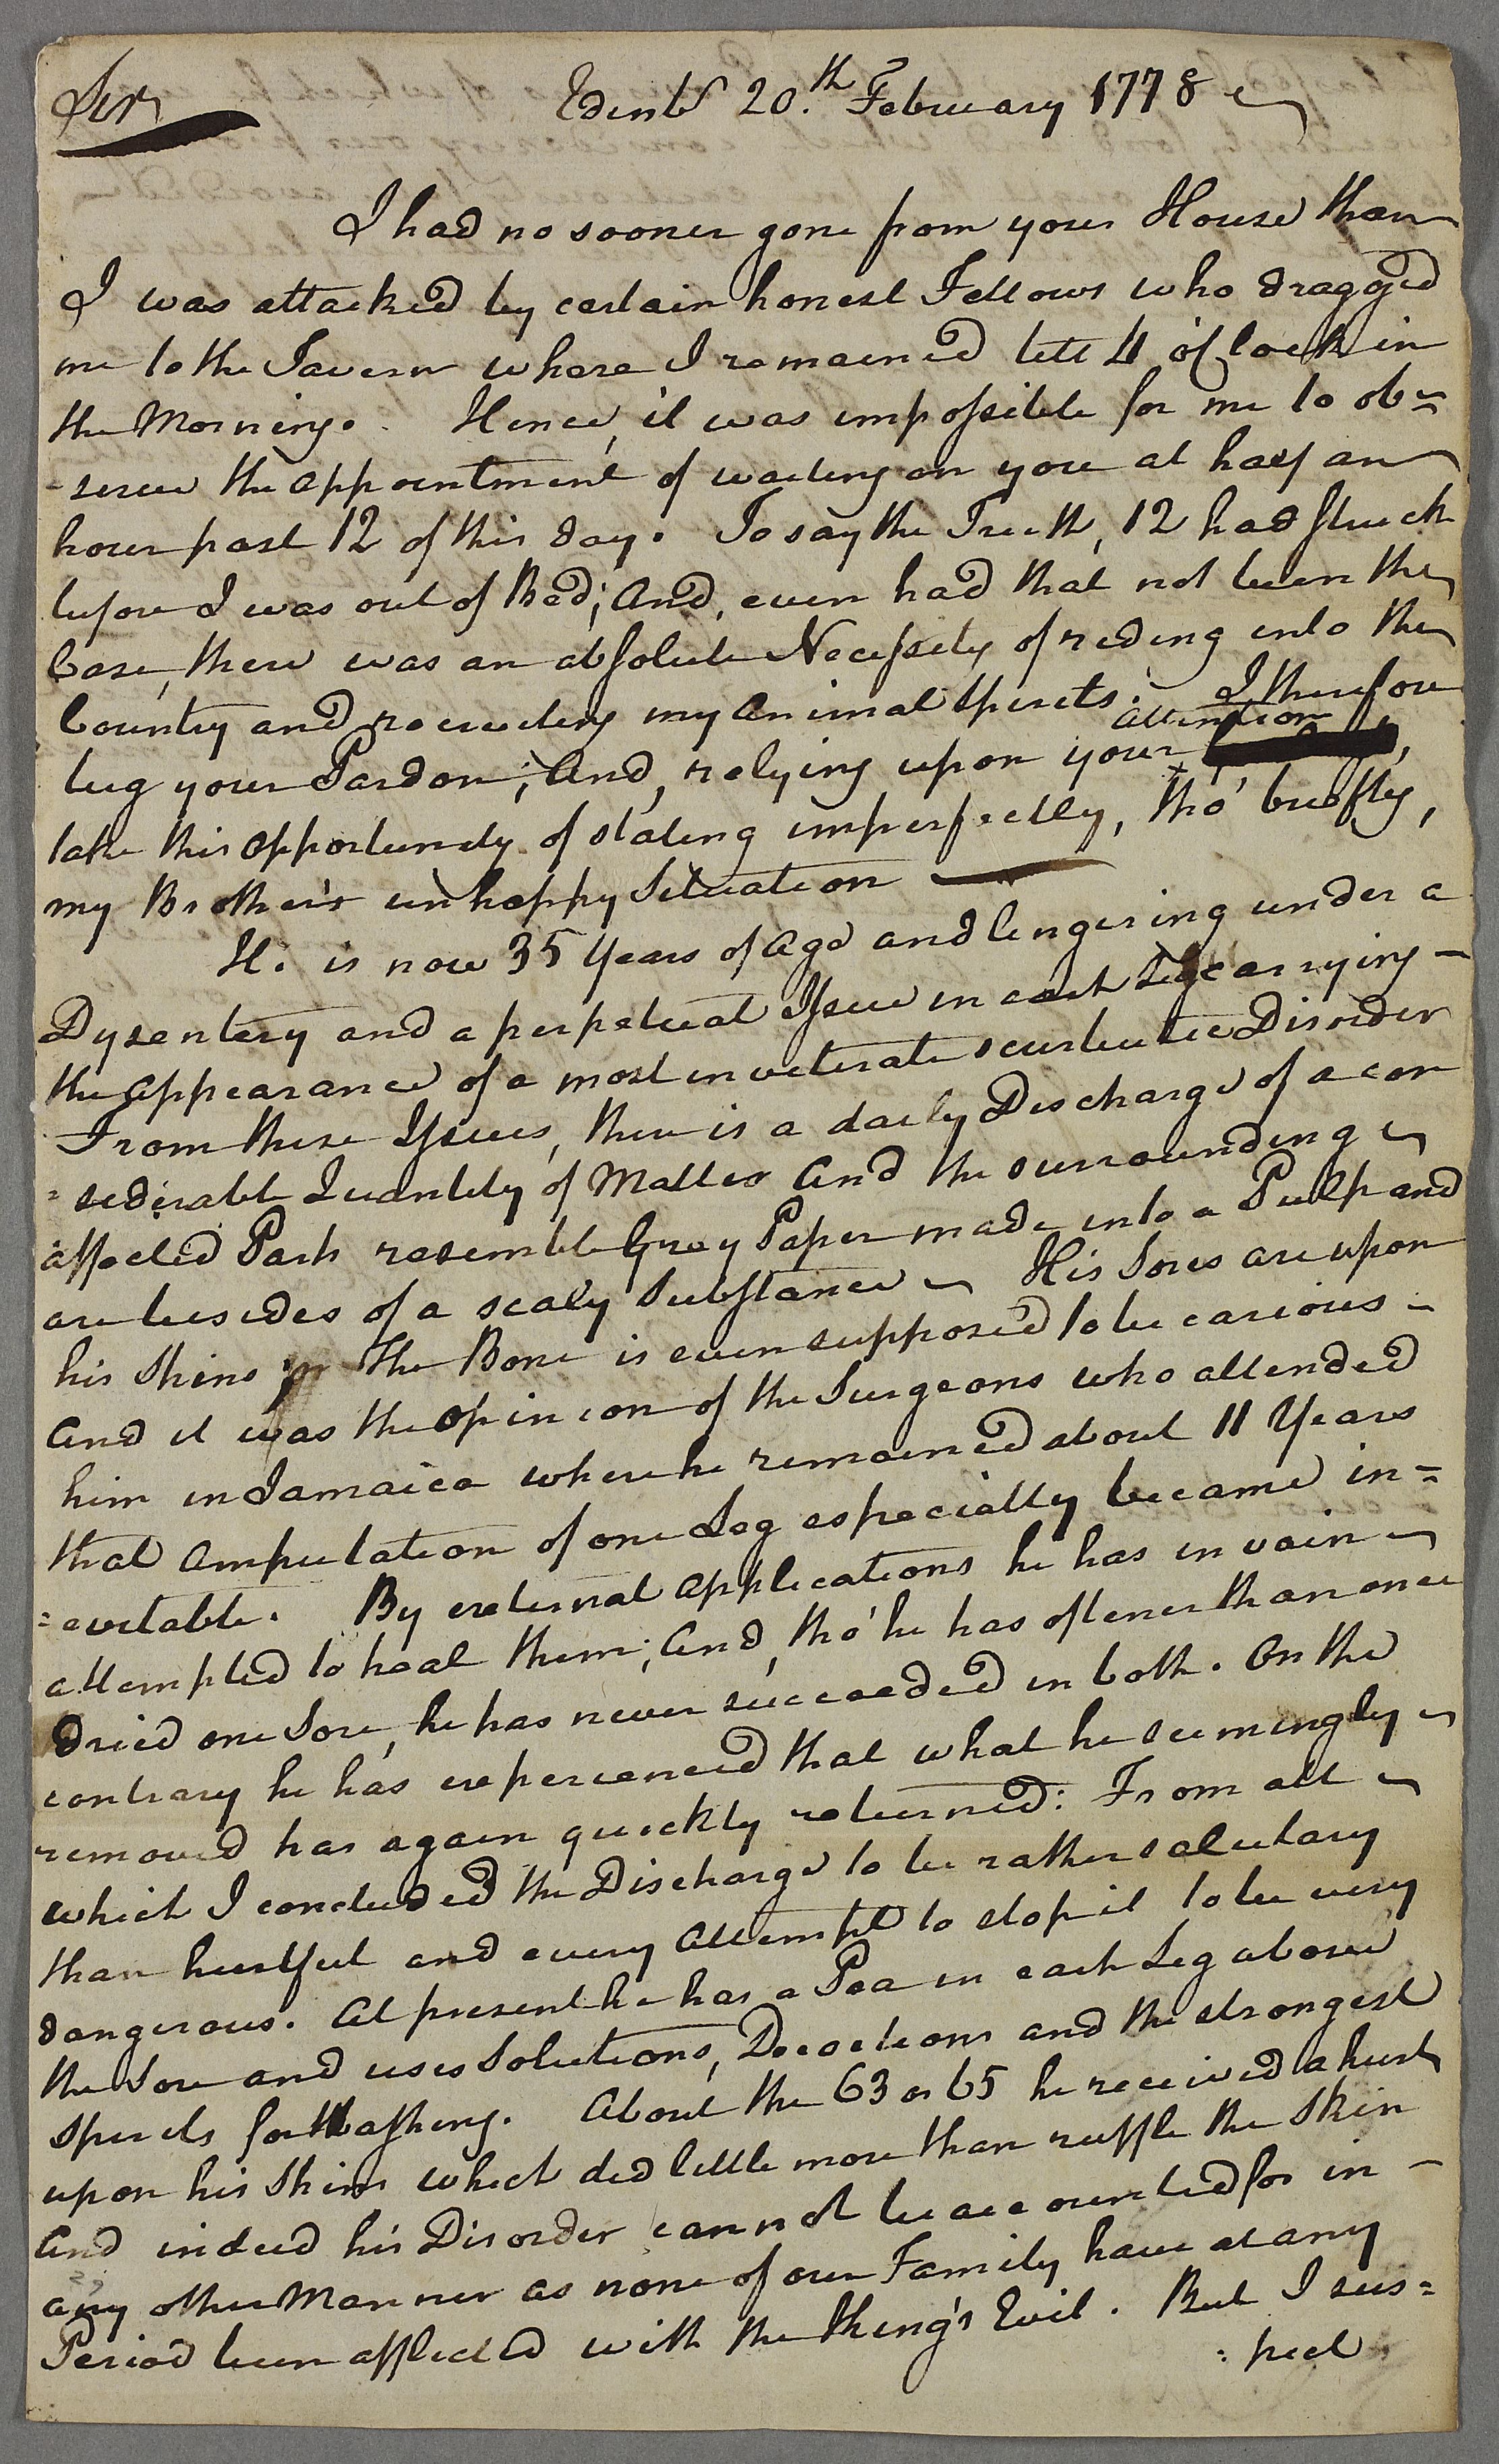 Sir
Edinbr 20.th February 1778
I had no sooner gone from your House than
I was attacked by certain honest Fellows who dragged
me to the Tavern where I remained till 4 o'Clock in
the Morning. Hence, it was impossible for me to ob=
-serve the appointment of waiting on you at half an
hour past 12 of this day. To say the Truth, 12 had struck
before I was out of Bed; And, even had that not been the
Case, there was an absolute Necessity of riding into the
Country and recruiting my Animal Spirits. I therefore
attention
beg your Pardon; And, relying upon your
take this opportunity of stating imperfectly, tho' briefly,
my Brother's unhappy Situation
He is now 35 Years of Age and lingering under a
Dysentery and a perpetual Issue in each Leg carrying
the Appearance of a most inveterate scurbutic Disorder
From these Issues, there is a daily Discharge of a con
=siderable Quantity of Matter And the surrounding
affected Parts resemble Grey Paper made into a Pulp and
are besides of a scaly Substance His Sores are upon
his Shins The Bone is even supposed to be carious
And it was the opinion of the Surgeons who attended
him in Jamaica where he remained about 11 Years
that Amputation of one Leg especially became in=
=evitable. By external Applications he has in vain
attempted to heal them; And, tho' he has oftener than once
dried one Sore, he has never succeeded in both. On the
contrary he has experienced that what he seemingly
removed has again quickly returned: From all
which I concluded the Discharge to be rather salutary
than hurtful and every Attempt to stop it to be very
dangerous. At present he has a Pea in each Leg above
the Sore and uses Solutions, Decoctions and the strongest
Spirits for Washing. About the 63 or 65 he received a hurt
upon his Shins which did little more than ruffle the Skin
And indeed his Disorder cannot be accounted for in
any other Manner as none of our Family have at any
Period been afflicted with the King's Evil. But I sus=
=pect